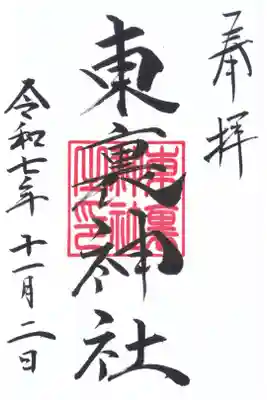 奉拝
東裏神社
東裏神社之印
令和七年十一月二日